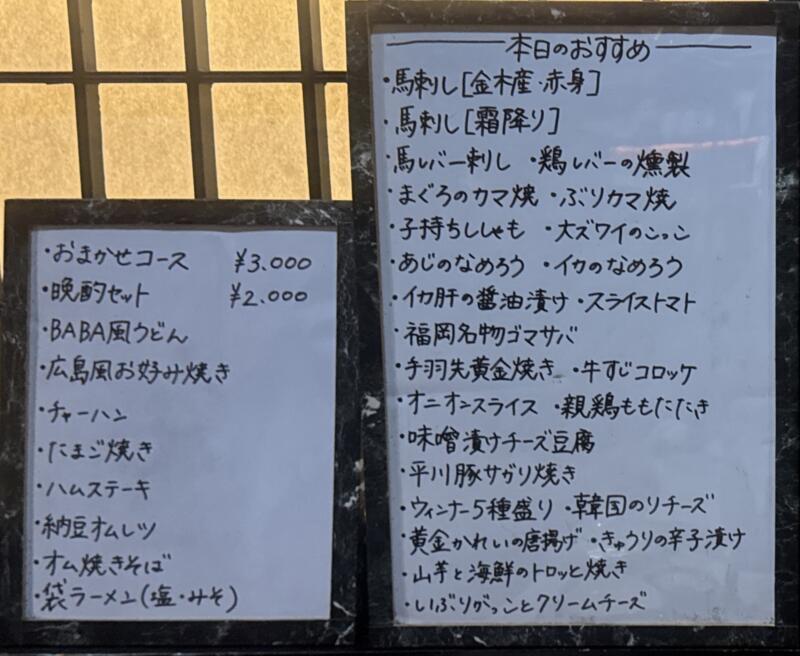 ・おまかせコース ¥3.000
・晩酌セット ¥2.000
・BABA風うどん
・広島風お好み焼き
・チャーハン
・たまご焼き
・ハムステーキ
・納豆オムレツ
・オム焼きそば
・袋ラーメン(塩・みそ)
本日のおすすめ
・馬刺し[金木産・赤身]
・馬刺し[霜降り]
・馬レバー刺し ・鶏レバーの燻製
・まぐろのカマ焼 ・ぶりカマ焼
・子持ちししゃも ・大ズワイのこっこ
・あじのなめろう ・イカのなめろう
・イカ肝の醤油漬け ・スライストマト
・福岡名物ゴマサバ
・手羽先黄金焼き ・牛すじコロッケ
・オニオンスライス ・親鶏ももたたき
・味噌漬けチーズ豆腐
・平川豚サガリ焼き
・ウィンナー5種盛り ・韓国のりチーズ
・黄金かれいの唐揚げ ・きゅうりの辛子漬け
・山芋と海鮮のトロッと焼き
・いぶりがっことクリームチーズ